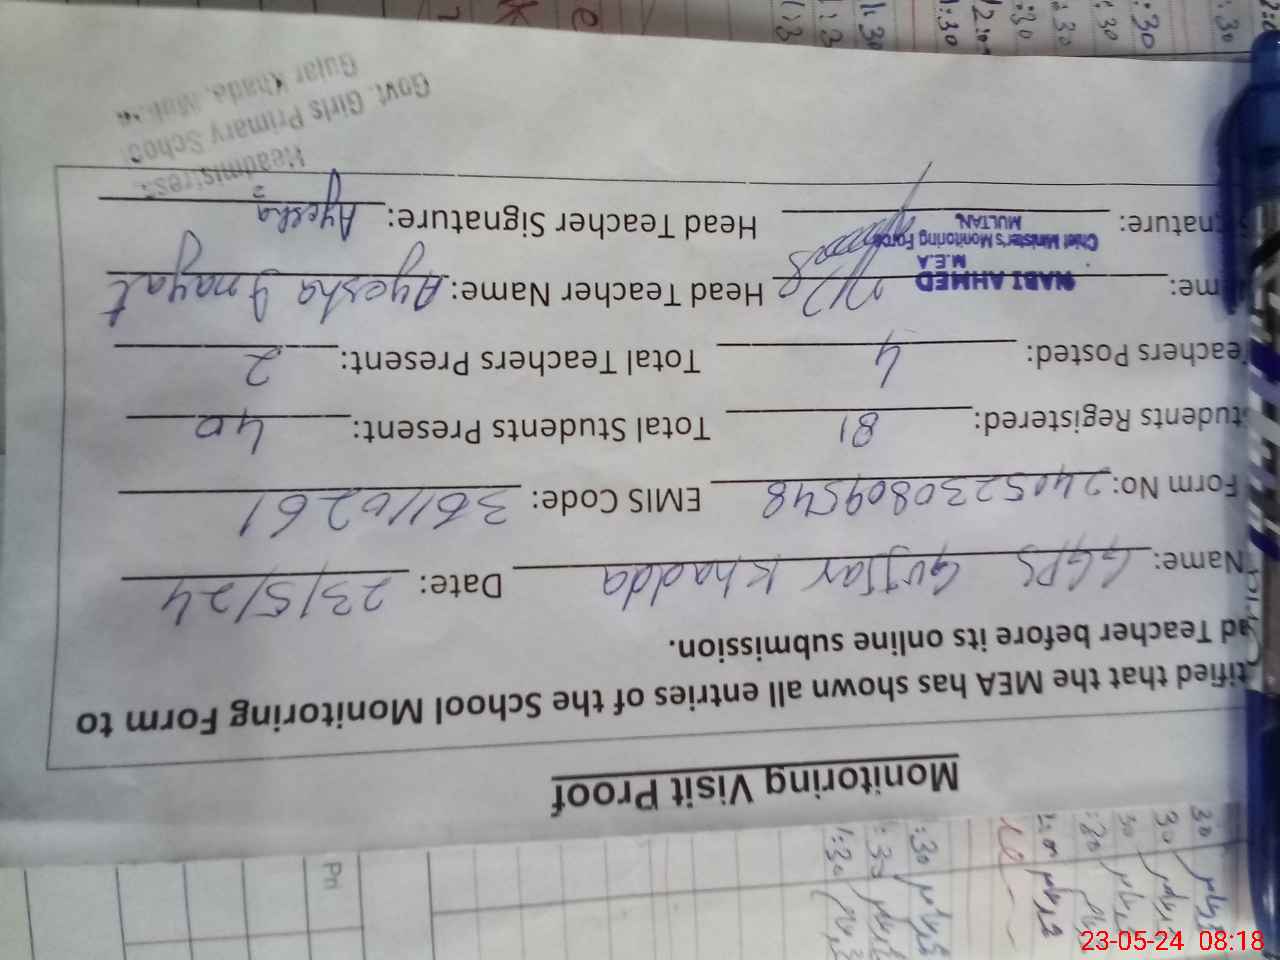 Monitoring Visit Proof
tified that the MEA has shown all entries of the School Monitoring Form to
ad Teacher before its online submission.
Name: GGPS Gujjar Khadda Date: 23/5/24
Form No: 2405230809548 EMIS Code: 36110261
tudents Registered: 81 Total Students Present: 40
eachers Posted: 4 Total Teachers Present: 2
me: NABI AHMED Head Teacher Name: Ayesha Inayat
M.E.A
Chief Minister's Monitoring Force
MULTAN
nature: Head Teacher Signature: Ayesha
Headmistress
Govt. Girls Primary School
Gujar Khada,
23-05-24 08:18